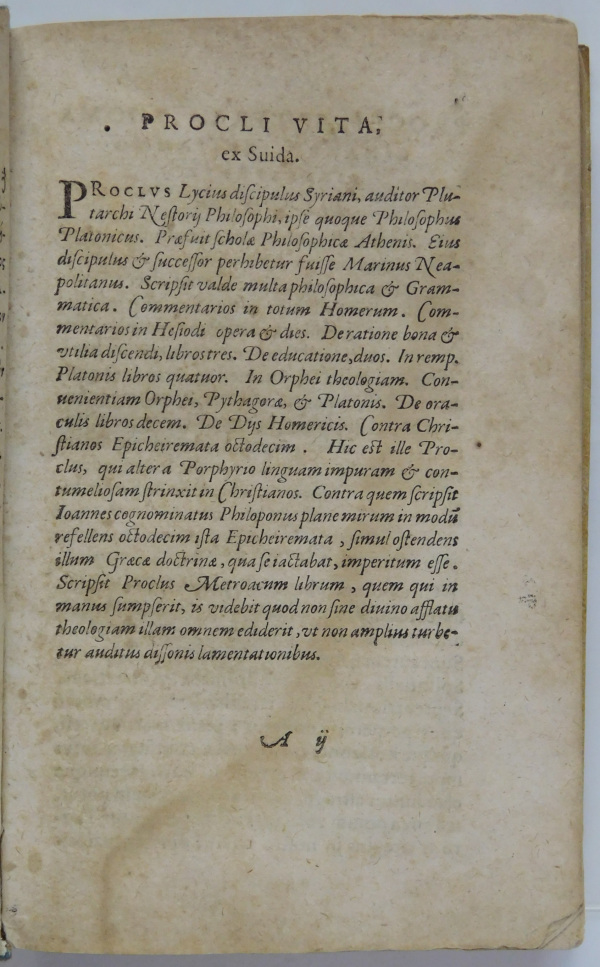 PROCLI VITA,
ex Suida.
PROCLVS Lycius diſcipulus Syriani, auditor Plu-
tarchi Neſtorij Philoſophi, ipſe quoque Philoſophus
Platonicus. Præfuit ſcholæ Philoſophicæ Athenis. Eius
diſcipulus & ſucceſſor perhibetur fuiſſe Marinus Nea-
politanus. Scripſit valde multa philoſophica & Gram-
matica. Commentarios in totum Homerum. Com-
mentarios in Heſiodi opera & dies. De ratione bona &
vtilia diſcendi, libros tres. De educatione, duos. In remp.
Platonis libros quatuor. In Orphei theologiam. Con-
uenientiam Orphei, Pythagoræ, & Platonis. De ora-
culis libros decem. De Dijs Homericis. Contra Chri-
ſtianos Epicheiremata octodecim. Hic eſt ille Pro-
clus, qui alter a Porphyrio linguam impuram & con-
tumelioſam ſtrinxit in Chriſtianos. Contra quem ſcripſit
Ioannes cognominatus Philoponus plane mirum in modū
refellens octodecim iſta Epicheiremata, ſimul oſtendens
illum Græcæ doctrinæ, qua ſe iactabat, imperitum eſſe.
Scripſit Proclus Metroacum librum, quem qui in
manus ſumpſerit, is videbit quod non ſine diuino afflatu
theologiam illam omnem ediderit, vt non amplius turbe-
tur auditus diſſonis lamentationibus.
A ij